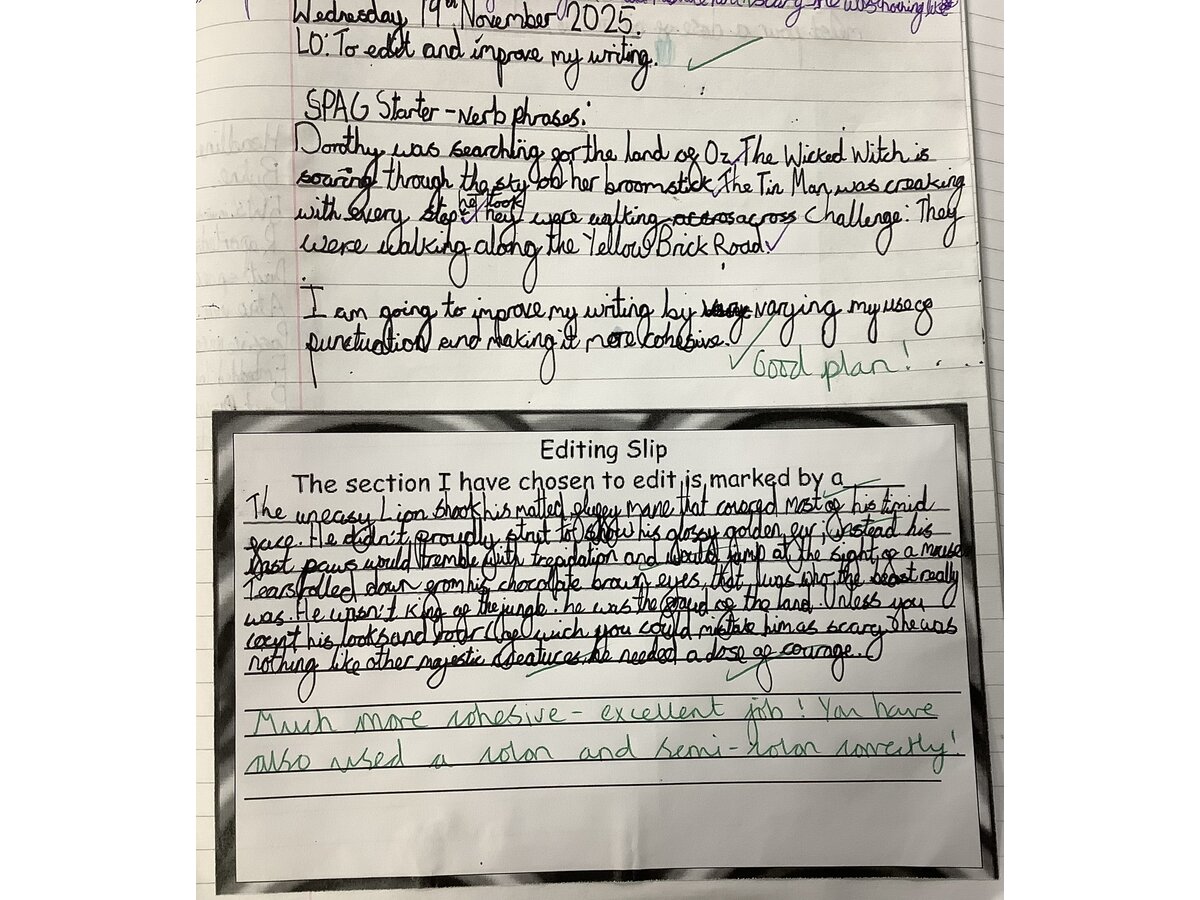 scary he was nothing like
Wednesday 19th November 2025.
LO: To edit and improve my writing.
SPAG Starter - Verb phrases:
Dorothy was searching for the land of Oz. The Wicked Witch is
soaring through the sky on her broomstick. The Tin Man was creaking
with every step he took They were walking across Challenge: They
were walking along the Yellow Brick Road.
I am going to improve my writing by varying my use of
punctuation and making it more cohesive.
Good plan!
Editing Slip
The section I have chosen to edit is marked by a
The uneasy Lion shook his matted, mane that covered most of his timid
face. He didn't proudly strut to show his glossy golden fur; instead his
vast paws would tremble with trepidation and would jump at the sight of a mouse
Tears rolled down from his chocolate brown eyes, that was who the beast really
was. He wasn't King of the jungle: he was the of the land. Unless you
count his looks and roar (by wich you could mistake him as scary) he was
nothing like other majestic creatures, he needed a dose of courage.
Much more cohesive - excellent job! You have
also used a colon and semi-colon correctly!